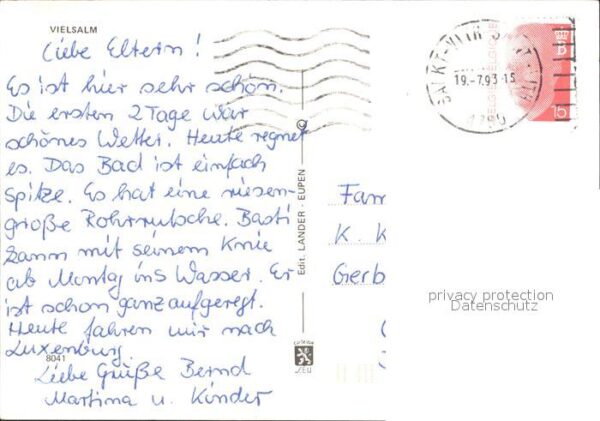 VIELSALM
Liebe Eltern!
Es ist hier sehr schön.
Die ersten 2 Tage war
schönes Wetter. Heute regnet
es. Das Bad ist einfach
Spitze. Es hat eine riesen-
große Rohrrutsche. Basti
kann mit seinem Knie
ab Montag ins Wasser. Er
ist schon ganz aufgeregt.
Heute fahren wir nach
Luxenburg
8041
Liebe Grüße Bernd
Martina u. Kinder
Edit. LANDER - EUPEN
©
SANKT-VITH
19.-7.93-15
4780
BELGIQUE
15
Fam
K. K
Gerb
privacy protection
Datenschutz